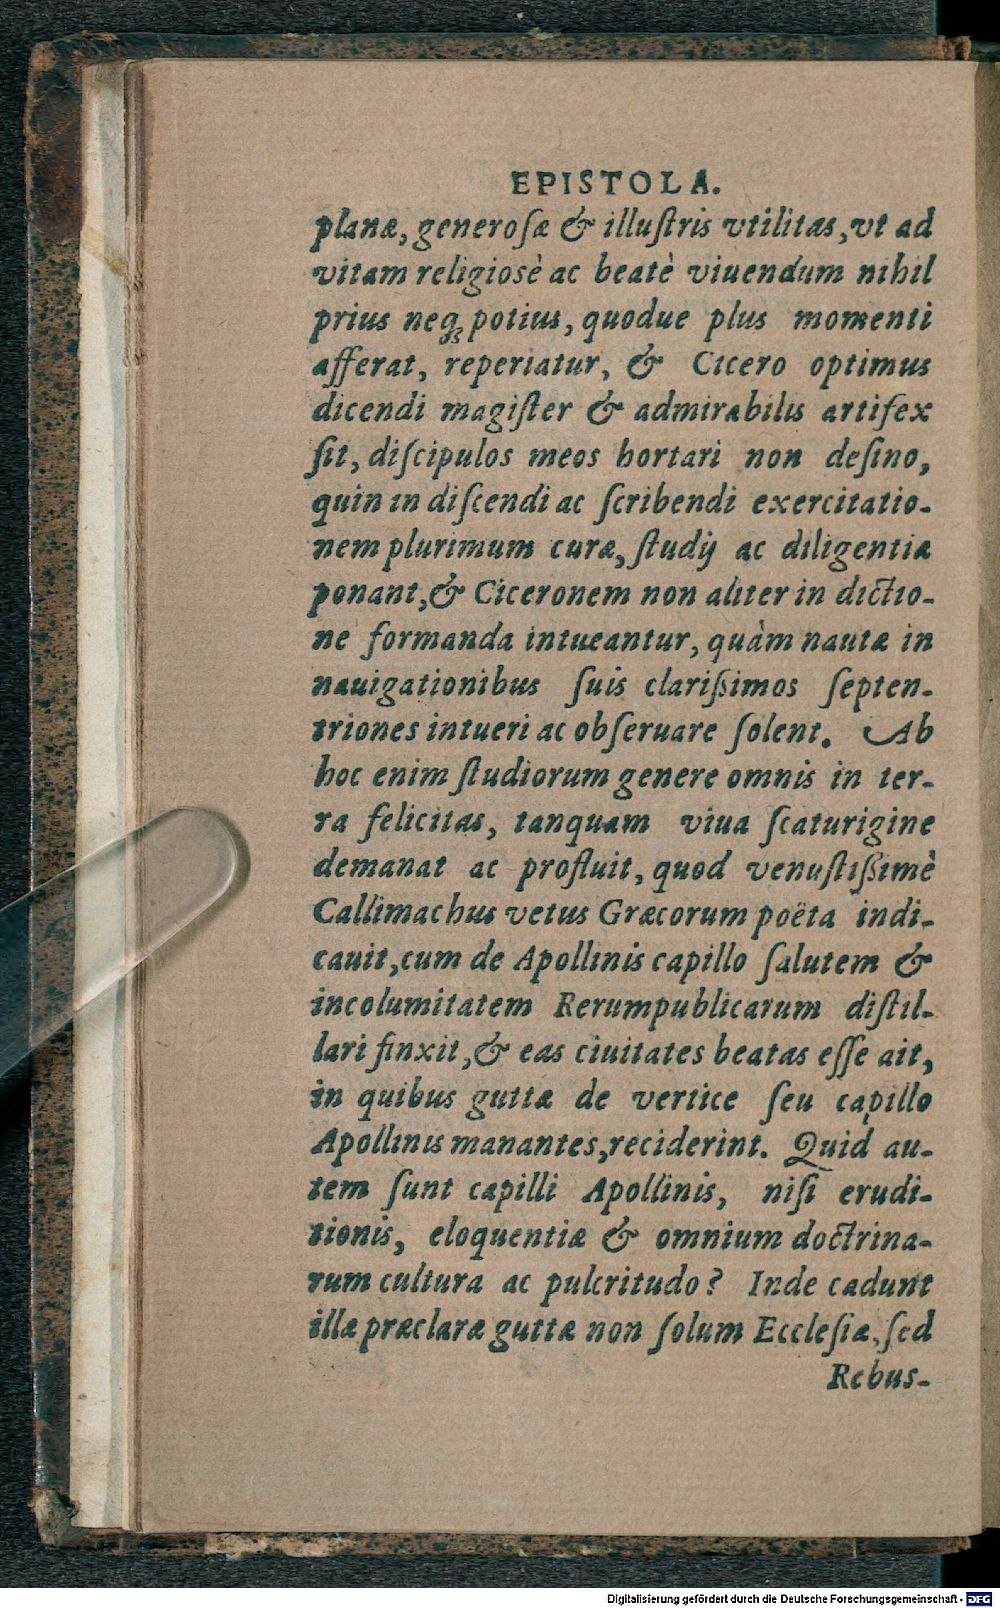 EPISTOLA.
planæ, generoſæ & illuſtris vtilitas, vt ad
vitam religiosè ac beatè viuendum nihil
prius neq; potius, quodue plus momenti
afferat, reperiatur, & Cicero optimus
dicendi magiſter & admirabilis artifex
ſit, diſcipulos meos hortari non deſino,
quin in diſcendi ac ſcribendi exercitatio-
nem plurimum curæ, ſtudij ac diligentiæ
ponant, & Ciceronem non aliter in dictio-
ne formanda intueantur, quàm nautæ in
nauigationibus ſuis clariſsimos ſepten-
triones intueri ac obſeruare ſolent. Ab
hoc enim ſtudiorum genere omnis in ter-
ra felicitas, tanquam viua ſcaturigine
demanat ac profluit, quod venuſtiſsimè
Callimachus vetus Græcorum poëta indi-
cauit, cum de Apollinis capillo ſalutem &
incolumitatem Rerumpublicarum diſtil-
lari finxit, & eas ciuitates beatas eſſe ait,
in quibus guttæ de vertice ſeu capillo
Apollinis manantes, reciderint. Quid au-
tem ſunt capilli Apollinis, niſi erudi-
tionis, eloquentiæ & omnium doctrina-
rum cultura ac pulcritudo? Inde cadunt
illæ præclaræ guttæ non ſolum Eccleſiæ, ſed
Rebus-
Digitalisierung gefördert durch die Deutsche Forschungsgemeinschaft - DFG